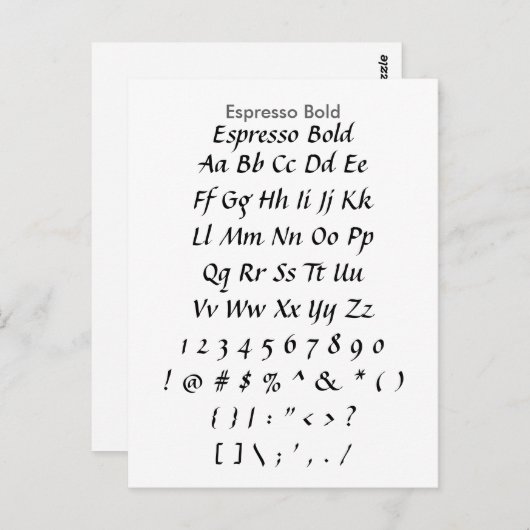 Espresso Bold
Espresso Bold
Aa Bb Cc Dd Ee
Ff Gg Hh Ii Jj Kk
Ll Mm Nn Oo Pp
Qq Rr Ss Tt Uu
Vv Ww Xx Yy Zz
1 2 3 4 5 6 7 8 9 0
! @ # $ % ^ & * ( )
{ } | : " < > ?
[ ] \ ; ' , . /